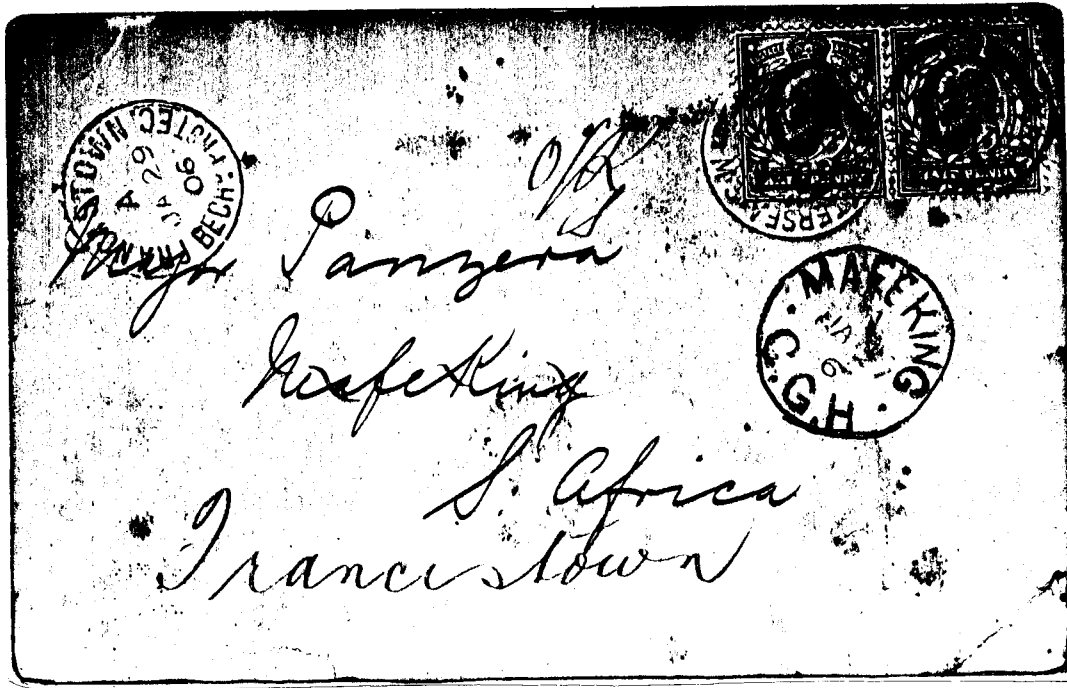 FRANCISTOWN. BECH. PROTEC.
A
JA 29
06
O/R
Major Panzera
Mafeking
S. Africa
Francistown
MAFEKING
C.G.H
JA